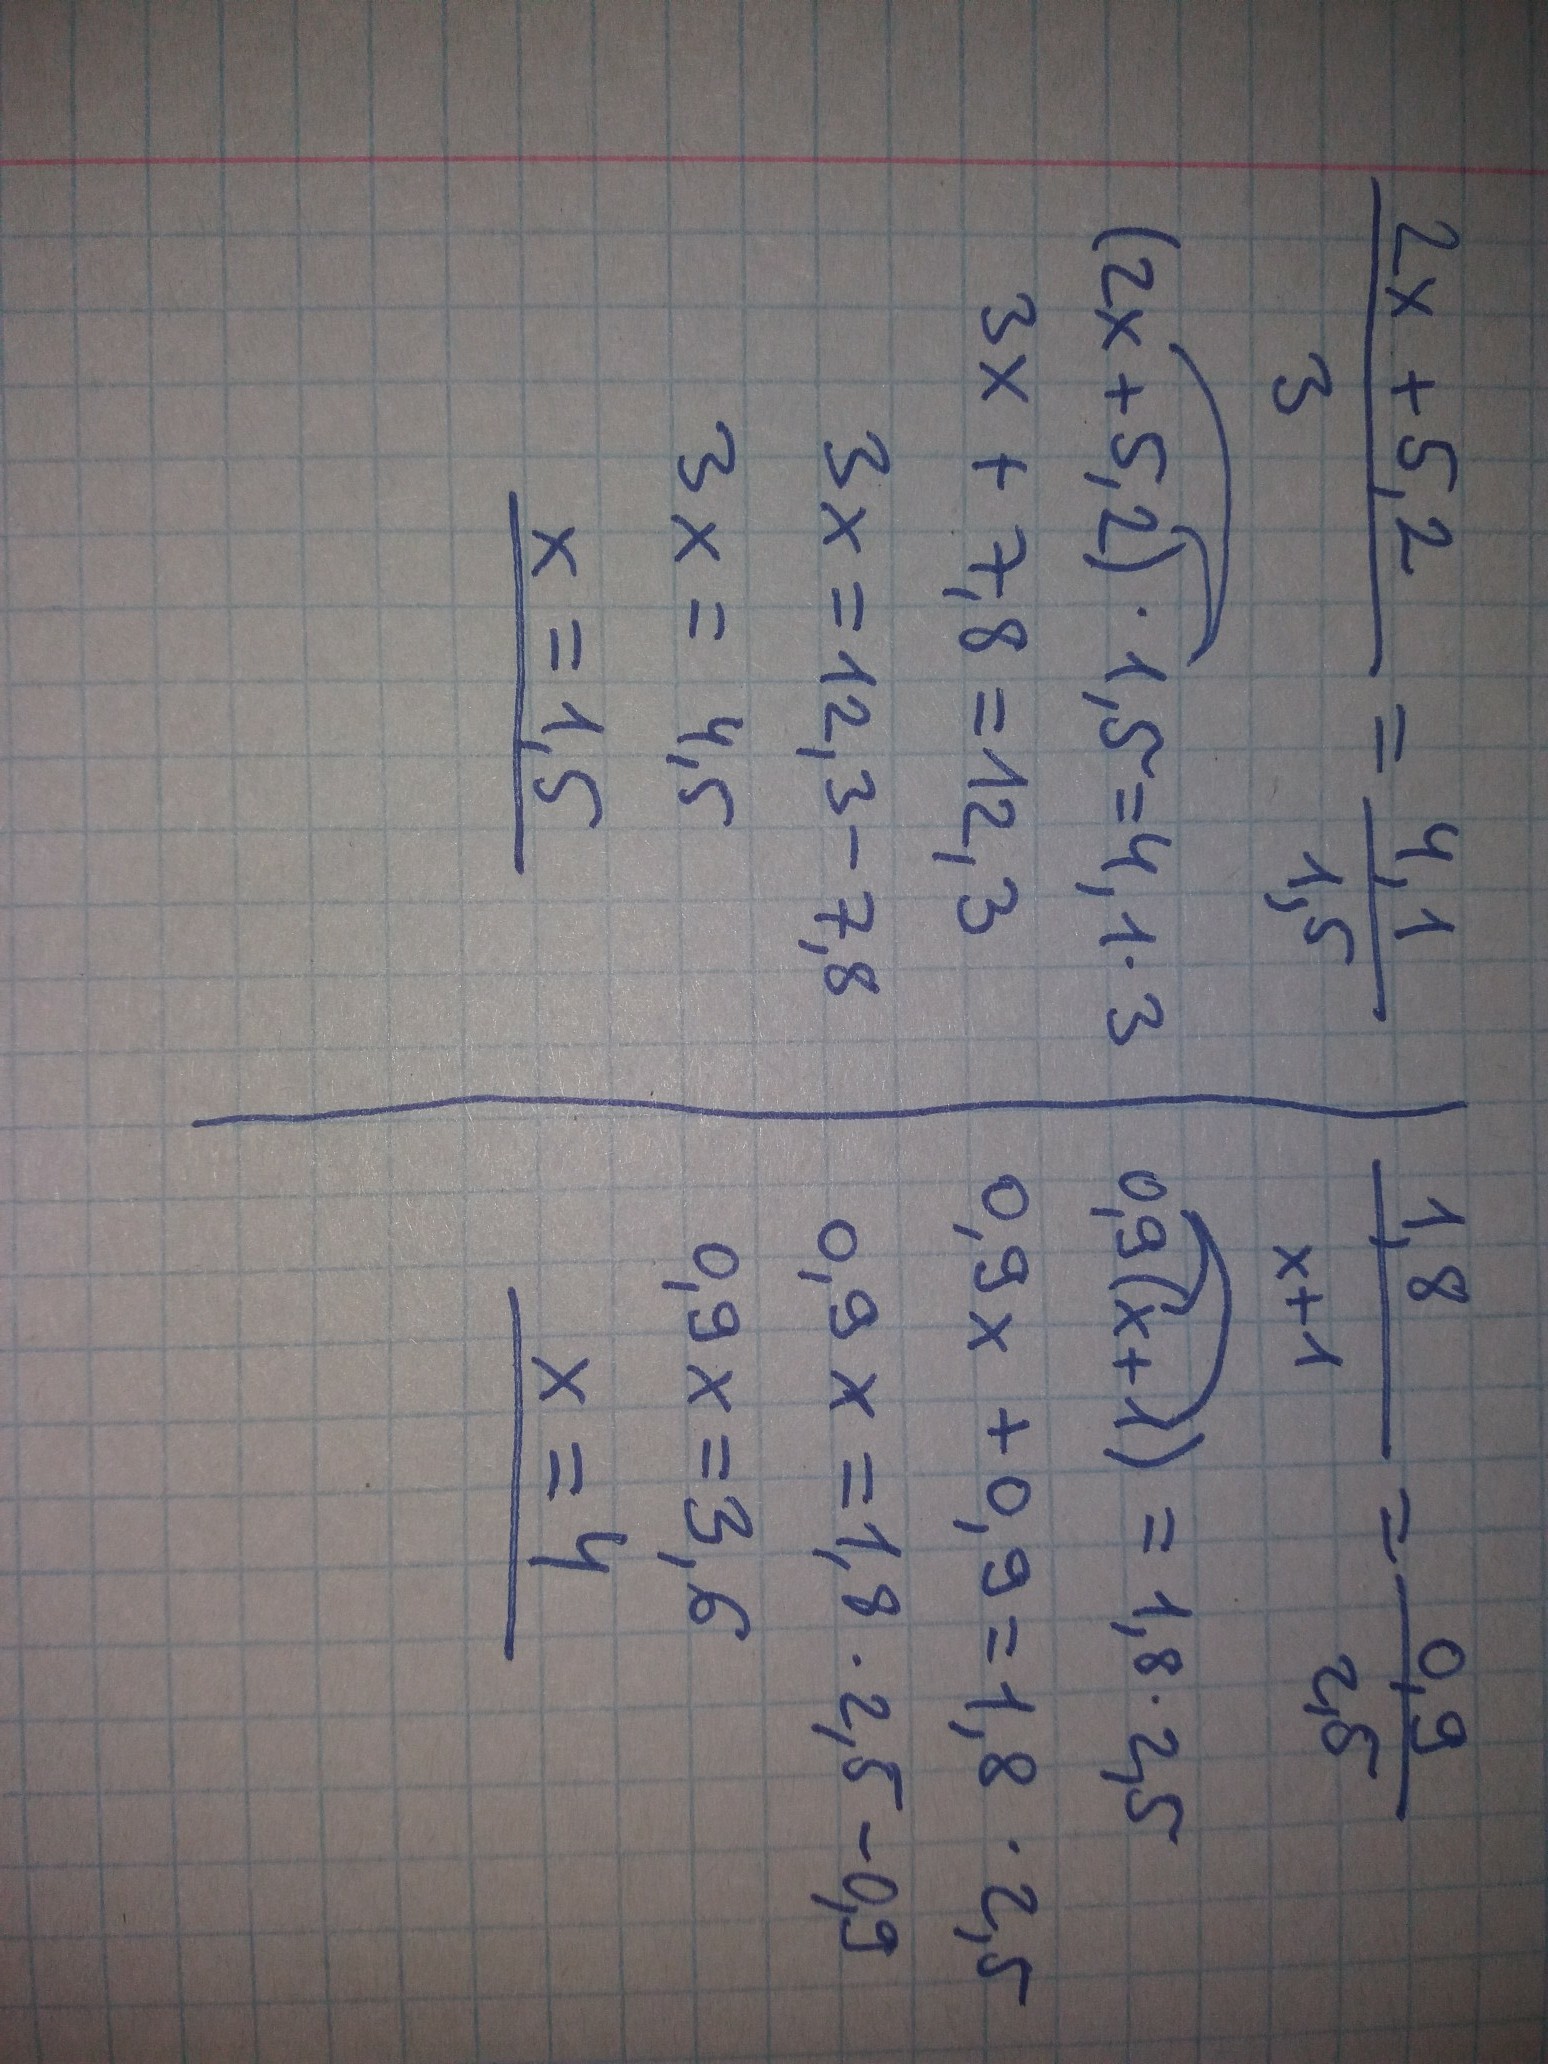 2x + 5,2 / 3 = 4,1 / 1,5
(2x + 5,2) · 1,5 = 4,1 · 3
3x + 7,8 = 12,3
3x = 12,3 - 7,8
3x = 4,5
x = 1,5
1,8 / x+1 = 0,9 / 2,5
0,9(x+1) = 1,8 · 2,5
0,9x + 0,9 = 1,8 · 2,5
0,9x = 1,8 · 2,5 - 0,9
0,9x = 3,6
x = 4